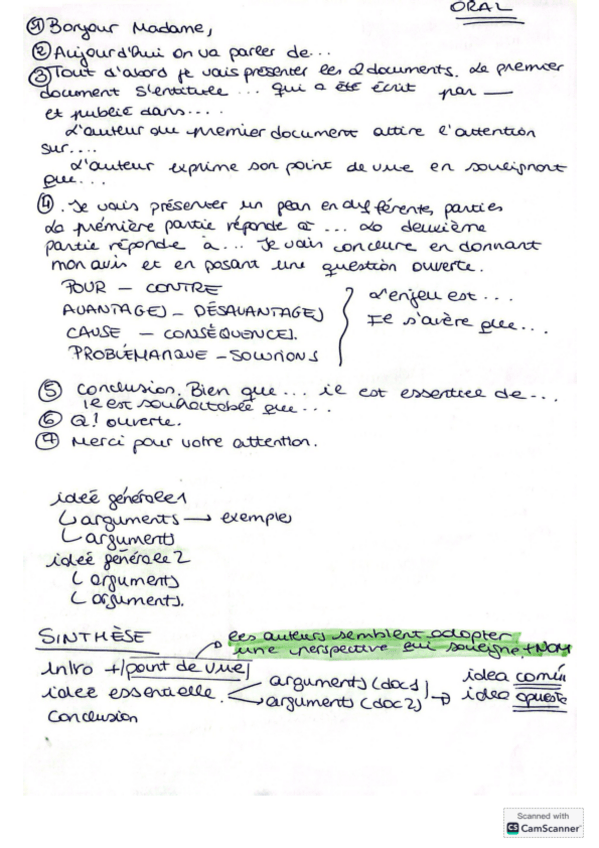 ORAL
① Bonjour Madame,
② Aujourd'hui on va parler de...
③ Tout d'abord je vais présenter les 2 documents. Le premier
document s'entitule ... qui a été écrit par —
et publié dans....
L'auteur du premier document attire l'attention
sur....
L'auteur exprime son point de vue en soulignant
que...
④. Je vais présenter un plan en différente, parties
La première partie réponde à ... La deuxième
partie réponde à... Je vais conclure en donnant
mon avis et en posant une question ouverte.
POUR — CONTRE
AVANTAGES — DÉSAVANTAGES
CAUSE — CONSÉQUENCES.
PROBLÉMATIQUE — SOLUTIONS
L'enjeu est...
Il s'avère que...
⑤ Conclusion. Bien que... il est essentiel de...
il est souhaitable que...
⑥ Q! ouverte.
⑦ Merci pour votre attention.
ideé générale 1
arguments → exemples
arguments
ideé générale 2
arguments
arguments.
SINTHÈSE
les auteurs semblent adopter
une perspective qui souligne + NOM
intro + /point de vue/
ideé essentielle.
arguments (doc 1)
arguments (doc 2)
idea común
idea opuesta
Conclusion
Scanned with
CS CamScanner